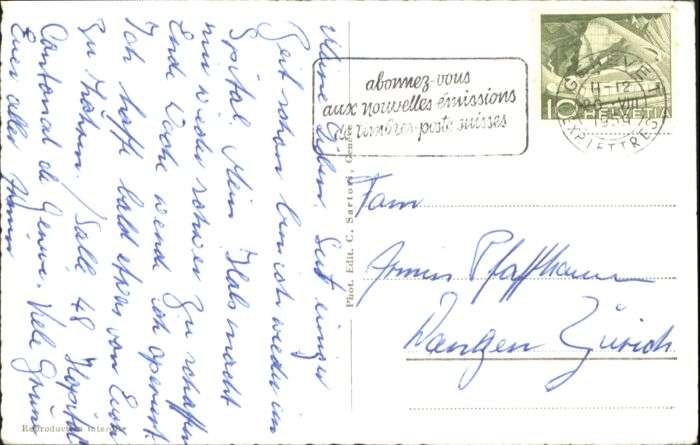 Meine Lieben. Seit einiger
Zeit schon bin ich wieder im
Spital. Mein Hals macht
mir wieder schwer zu schaffen
Ende Woche werde ich operiert.
Ich hoffe bald etwas von Euch
zu hören. / Salle 48 Hopital
Cantonal de Genève. Viele Grüsse
Euer aller
abonnez-vous
aux nouvelles émissions
de timbres-poste suisses
GENÈVE 1
11-12
VIII
EXP. LETTRES
10 HELVETIA
Phot. Edit. C. Sartori, Genève
Fam
Armin Pfaffhauser
Wangen Zürich
Reproduction interdite